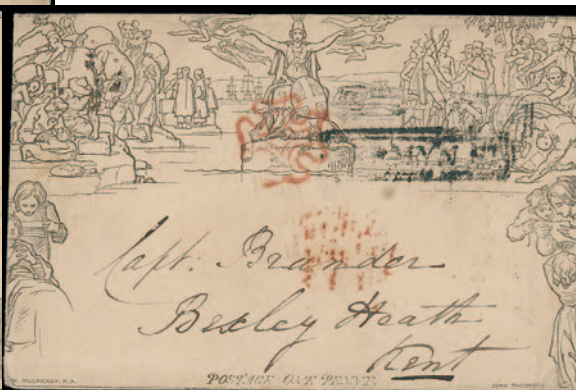 Capt. Brander
Bexley Heath
Kent
W. MULREADY, R.A.
POSTAGE ONE PENNY.
JOHN THOMPSON